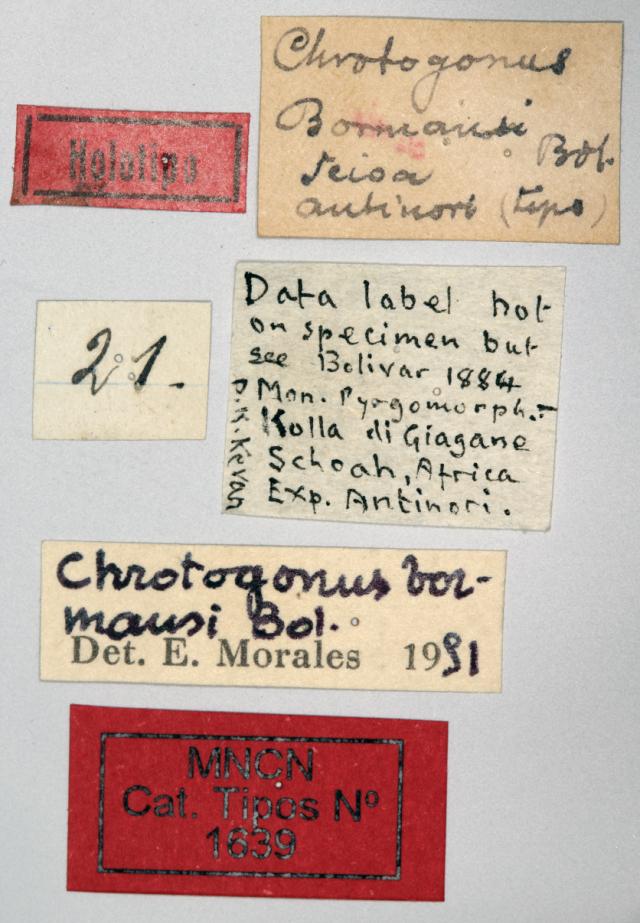 Chrotogonus
Bormansi Bol.
Scioa
antinori (tipo)
Holotipo
21.
Data label not
on specimen but
see Bolivar 1884
Mon. Pyrgomorph.-
Kolla di Giagane
Schoah, Africa
Exp. Antinori.
D.K. Kevan
Chrotogonus bor-
mansi Bol.
Det. E. Morales 1991
MNCN
Cat. Tipos Nº
1639